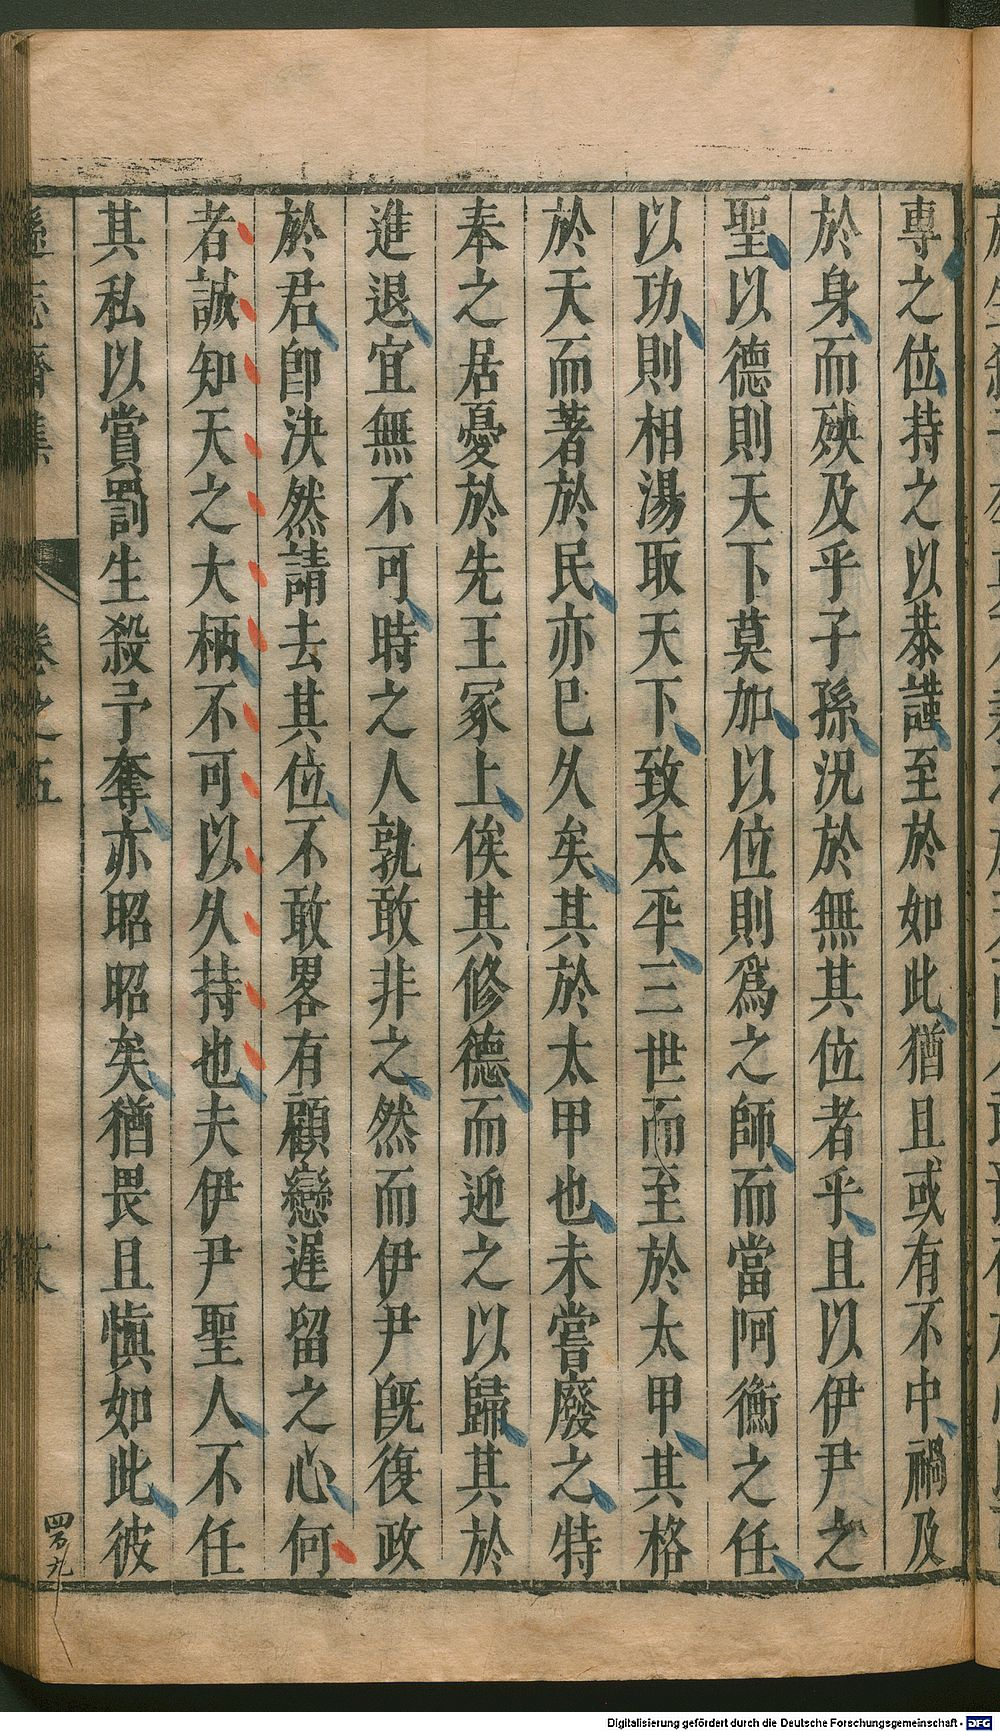 專之位持之以恭謹至於如此猶且或有不中禍及
於身而殃及乎子孫況於無其位者乎且以伊尹之
聖以德則天下莫加以位則爲之師而當阿衡之任
以功則相湯取天下致太平三世而至於太甲其格
於天而著於民亦巳久矣其於太甲也未嘗廢之特
奉之居憂於先王冢上俟其修德而迎之以歸其於
進退宜無不可時之人孰敢非之然而伊尹旣復政
於君卽決然請去其位不敢畧有顧戀遲留之心何
者誠知天之大柄不可以久持也夫伊尹聖人不任
其私以賞罰生殺予奪亦昭昭矣猶畏且愼如此彼
遜志齋集 卷之五
Digitalisierung gefördert durch die Deutsche Forschungsgemeinschaft - DFG